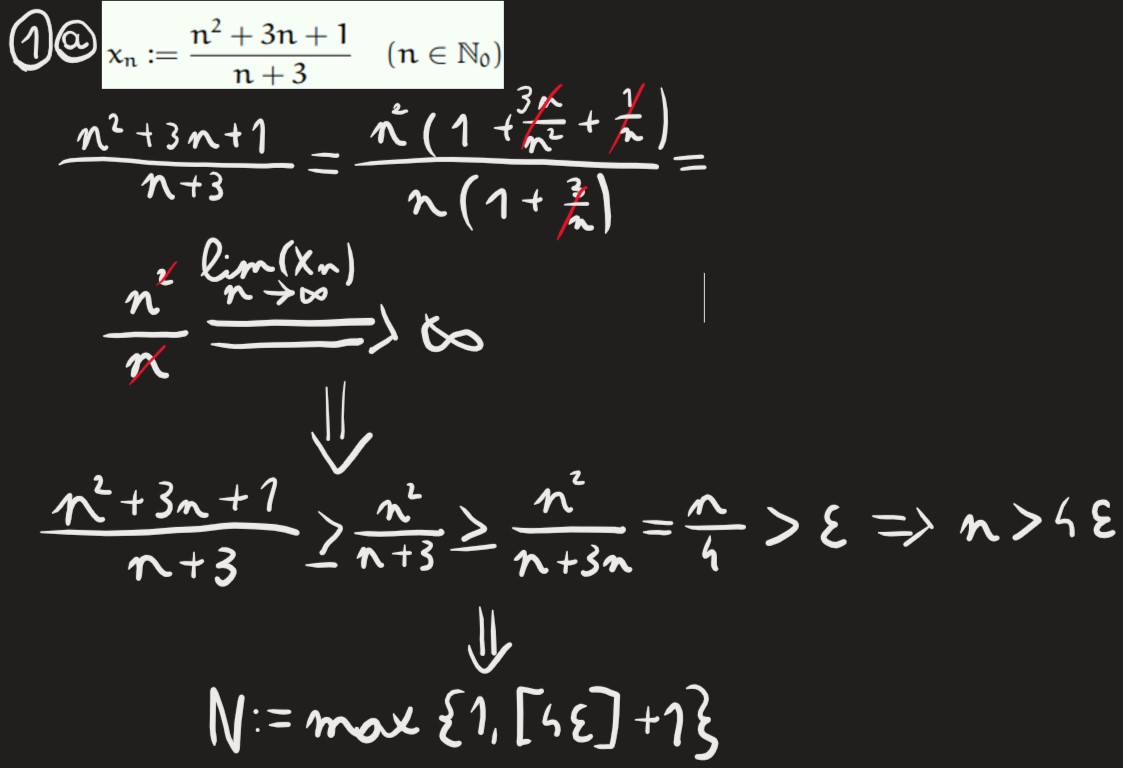 1 a x_n := (n² + 3n + 1) / (n + 3) (n ∈ ℕ₀)
(n² + 3n + 1) / (n + 3) = n² (1 + 3n/n² + 1/n) / n (1 + 3/n) =
n² / n lim(x_n) n → ∞ ⟹ ∞
⇓
(n² + 3n + 1) / (n + 3) ≥ n² / (n + 3) ≥ n² / (n + 3n) = n / 4 > ε ⟹ n > 4ε
⇓
N := max {1, [4ε] + 1}